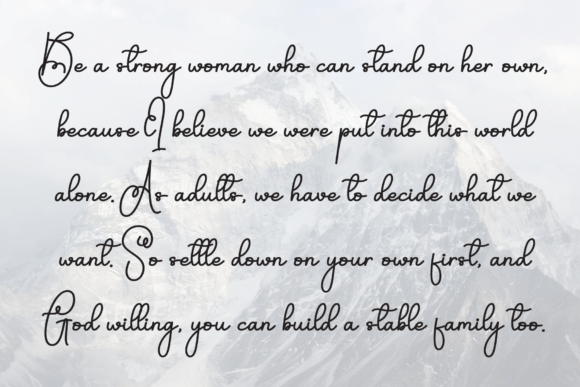 Be a strong woman who can stand on her own,
because I believe we were put into this world
alone. As adults, we have to decide what we
want. So settle down on your own first, and
God willing, you can build a stable family too.